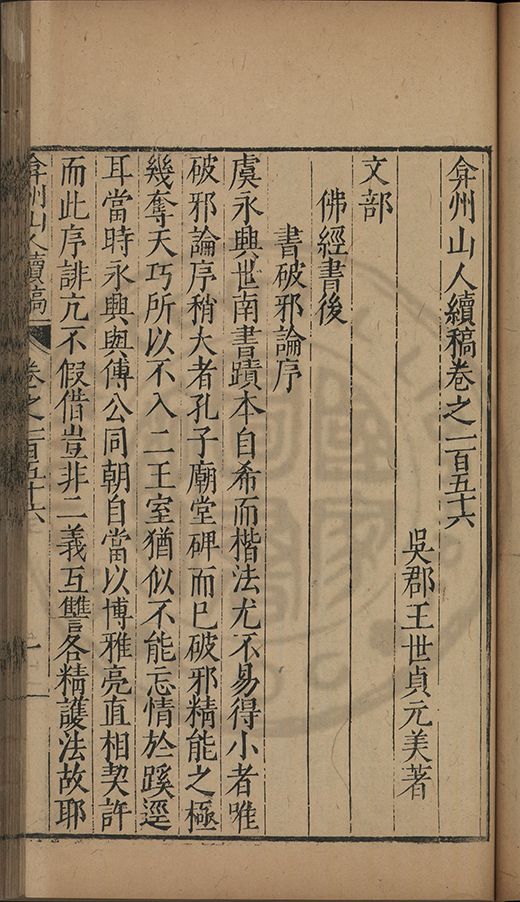 弇州山人續稿卷之一百五十六
吳郡王世貞元美著
文部
佛經書後
書破邪論序
虞永興世南書蹟本自希而楷法尤不易得小者唯
破邪論序稍大者孔子廟堂碑而巳破邪精能之極
幾奪天巧所以不入二王室猶似不能忘情於蹊逕
耳當時永興與傅公同朝自當以博雅亮直相契許
而此序誹亢不假借豈非二義互讐各精護法故耶
弇州山人續稿
卷之一百五十六
一